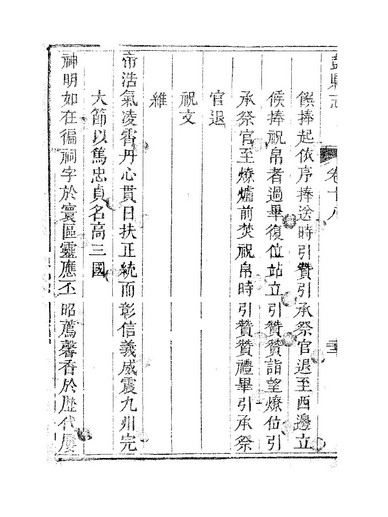 盩縣志　卷十八
候捧起依序捧送時引贊引承祭官退至西邊立
候捧祝帛者過畢復位站立引贊贊詣望燎位引
承祭官至燎爐前焚祝帛時引贊贊禮畢引承祭
官退
祝文
維
帝浩氣凌霄丹心貫日扶正統而彰信義威震九州完
大節以篤忠貞名高三國
神明如在徧祠宇於寰區靈應丕昭薦馨香於歷代屢